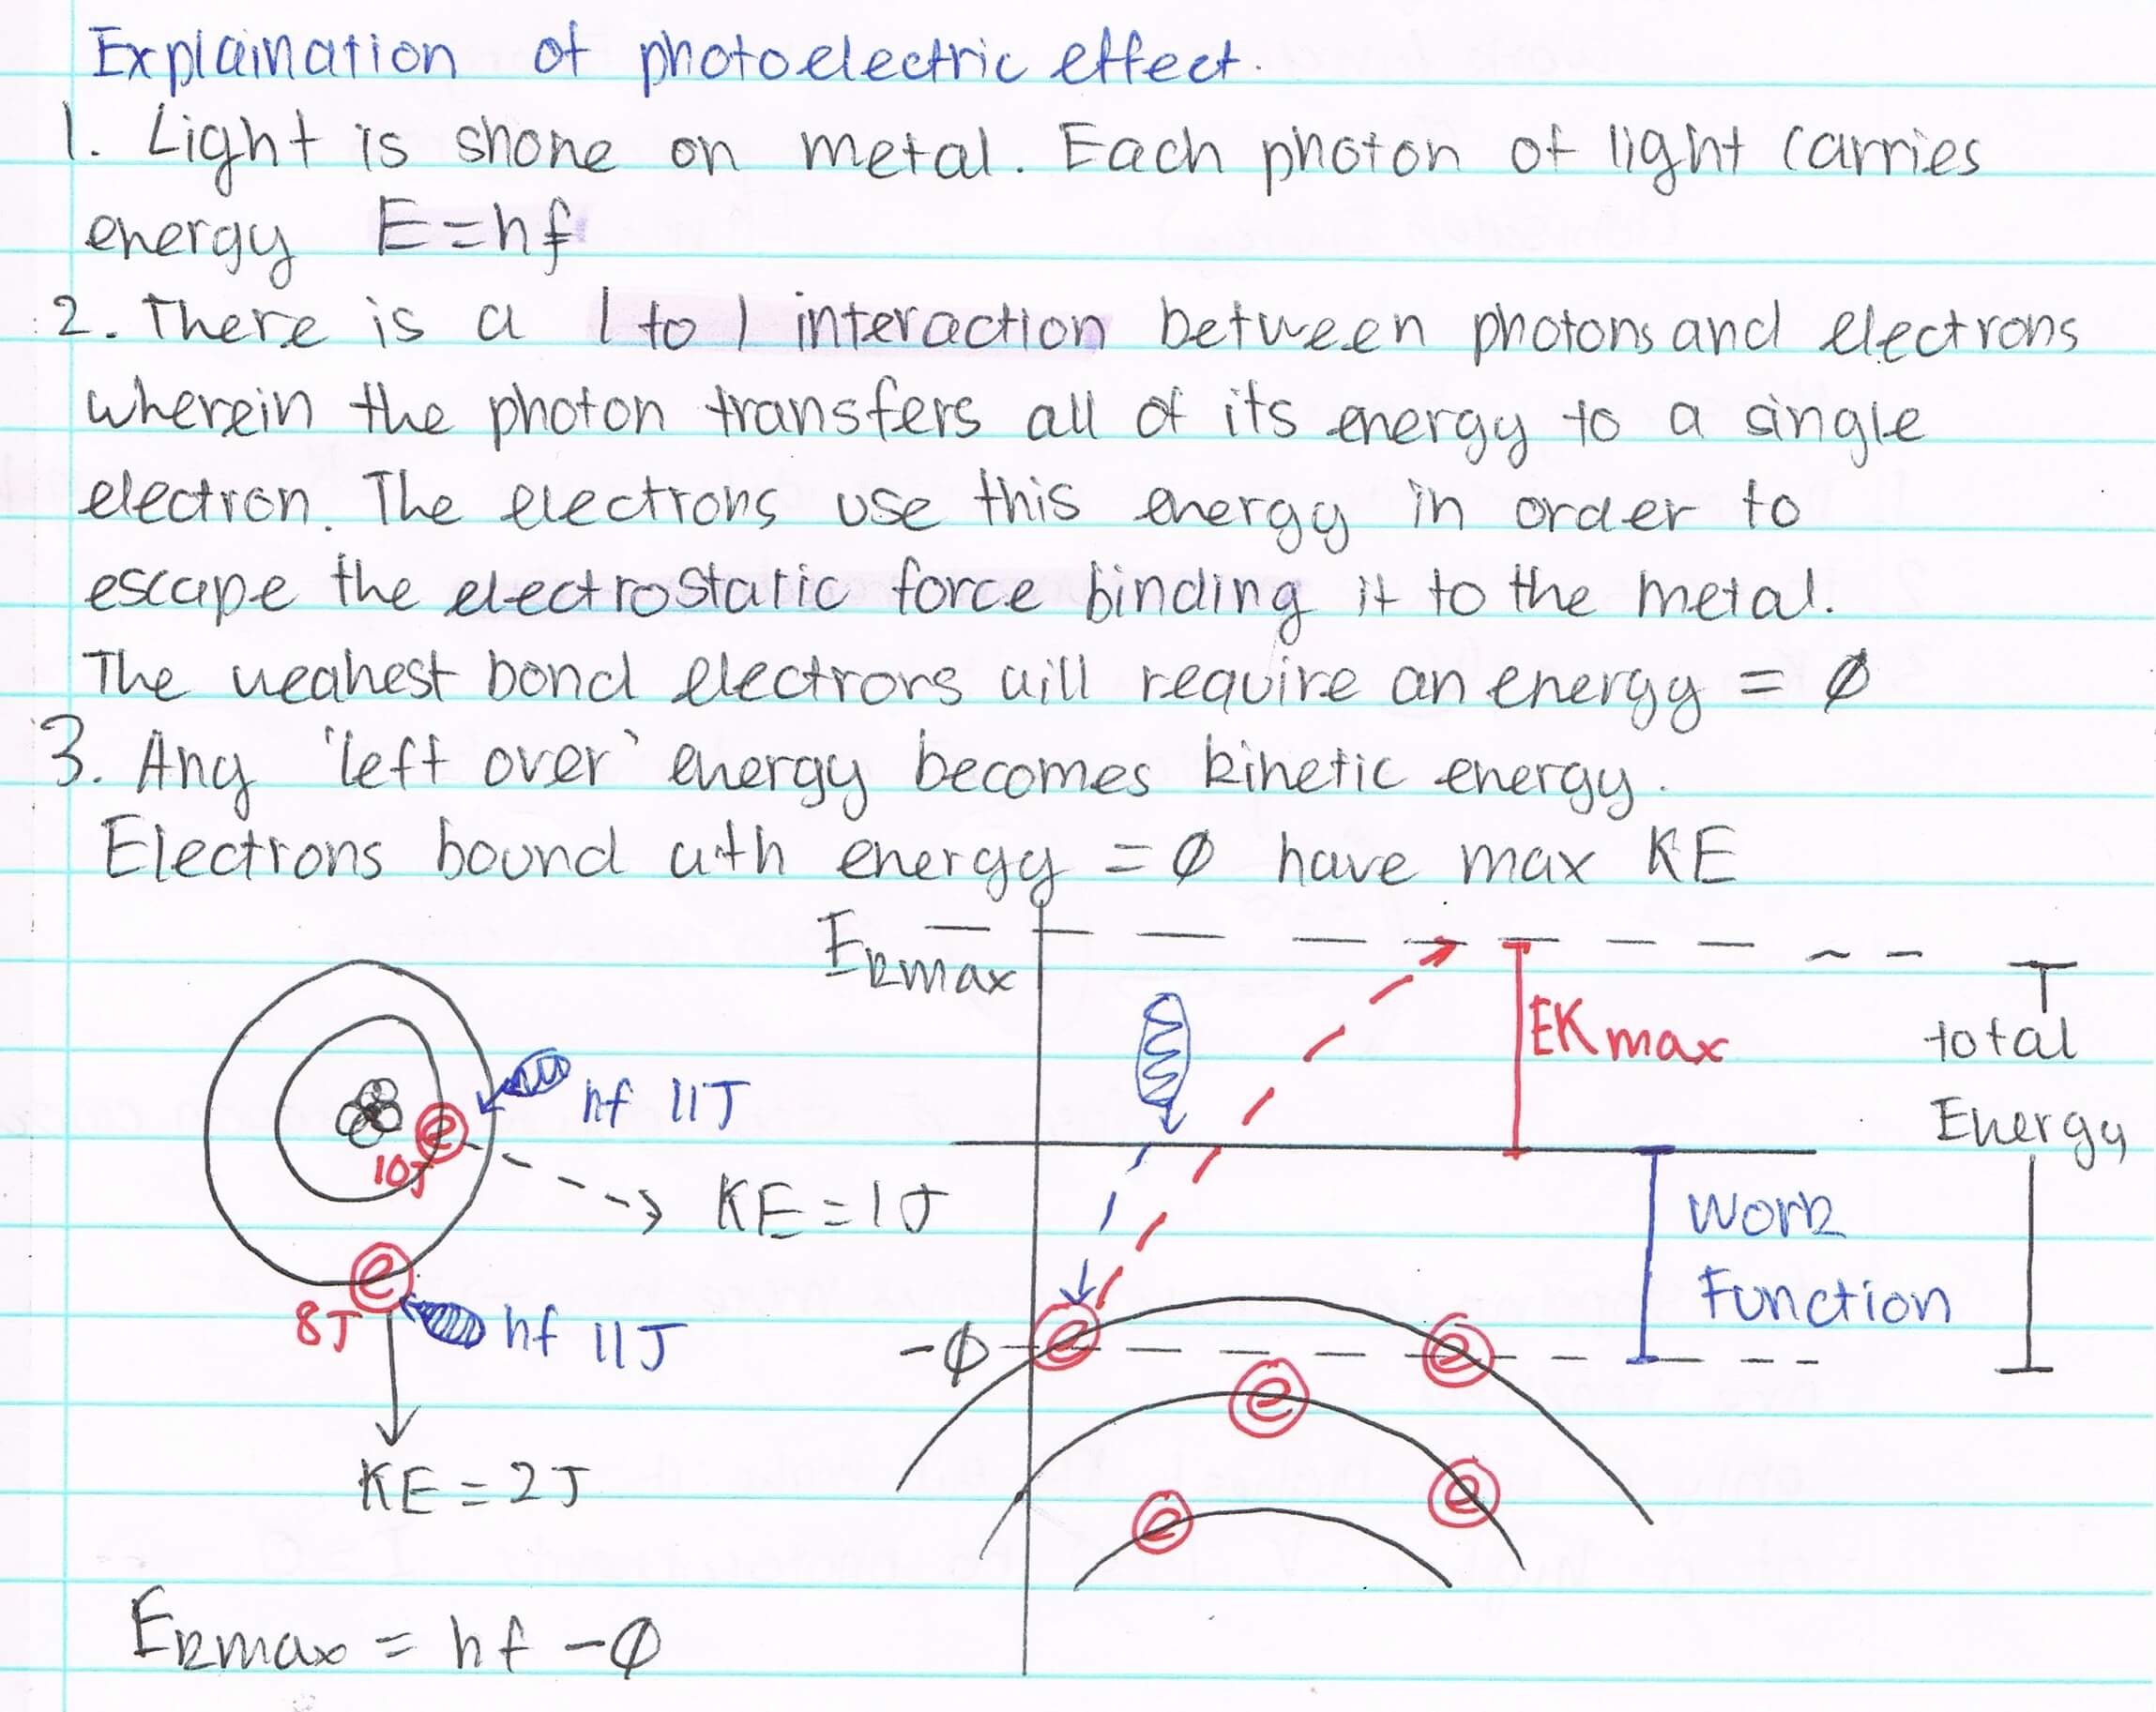 Explaination of photoelectric effect.
1. Light is shone on metal. Each photon of light carries
energy E=hf
2. There is a 1 to 1 interaction between photons and electrons
wherein the photon transfers all of its energy to a single
electron. The electrons use this energy in order to
escape the electrostatic force binding it to the metal.
The weakest bond electrons will require an energy = Ø
3. Any 'left over' energy becomes kinetic energy.
Electrons bound with energy = Ø have max KE
Ekmax
EKmax
total
Energy
hf 11J
e
10J
KE = 1J
Work
Function
e
8J
hf 11J
-Ø
e
e
e
KE = 2J
e
e
Ekmax = hf - Ø